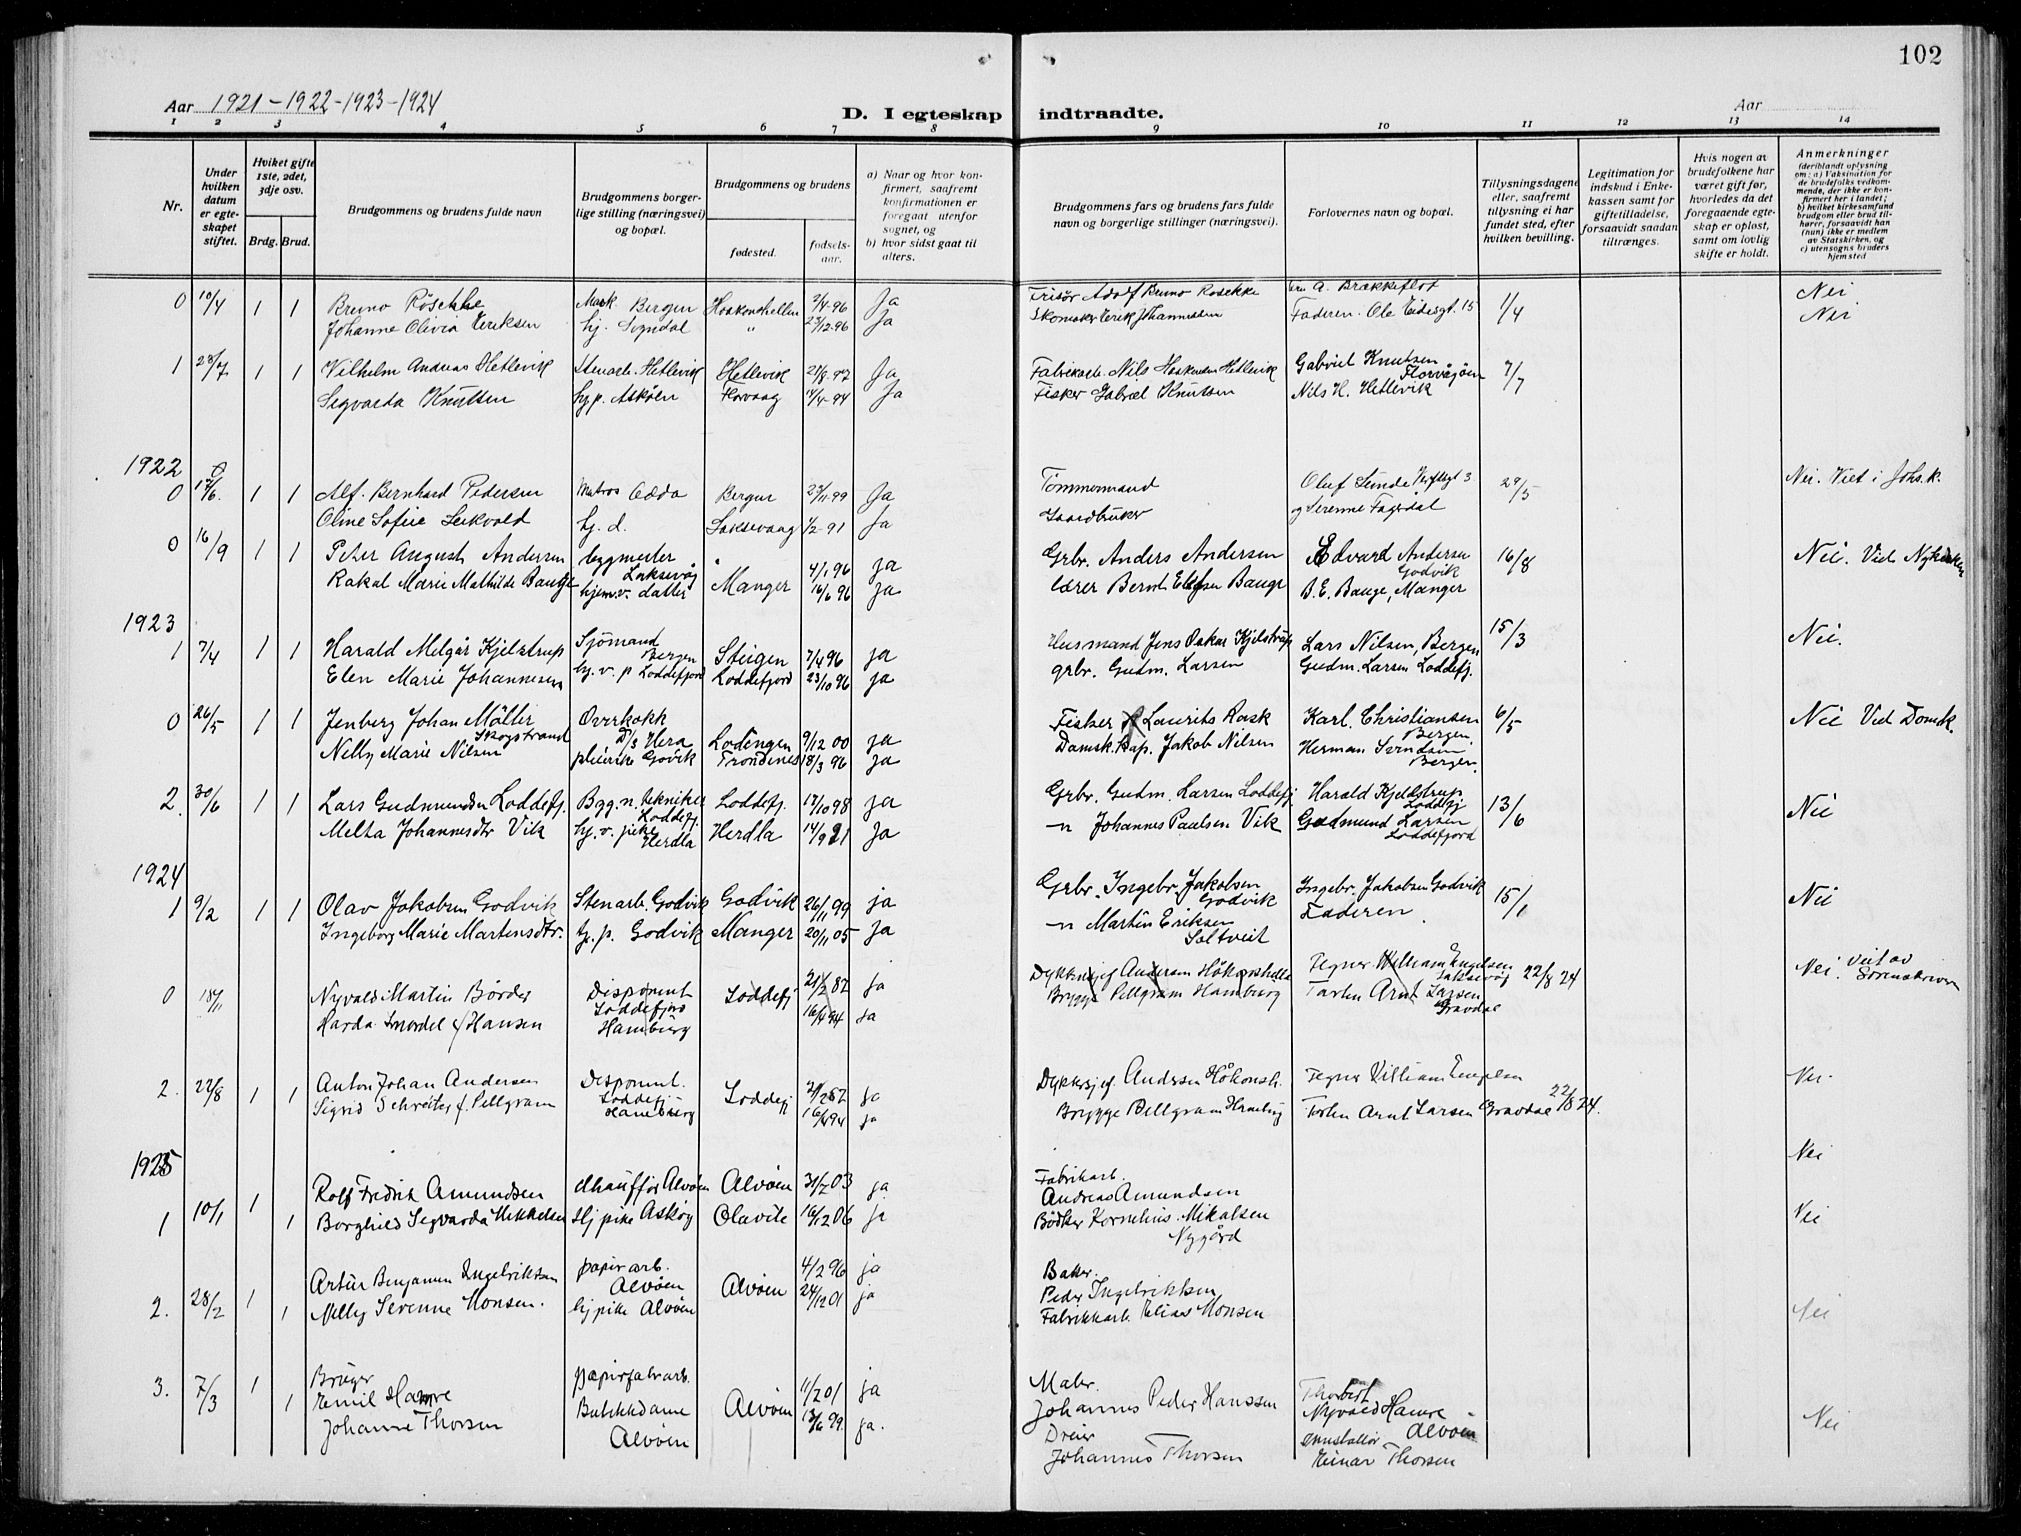 102
Aar 1921 - 1922 - 1923 - 1924
D. I egteskap indtraadte.
Aar
1 2 3 4 5 6 7 8 9 10 11 12 13 14
Nr.
Under hvilken datum er egteskapet stiftet.
Hvilket gifte 1ste, 2det, 3dje osv.
Brdg. Brud.
Brudgommens og brudens fulde navn
Brudgommens borgerlige stilling (næringsvei) og bopæl.
Brudgommens og brudens
fødested.
fødselsaar.
a) Naar og hvor konfirmert, saafremt konfirmationen er foregaat utenfor sognet, og
b) hvor sidst gaat til alters.
Brudgommens fars og brudens fars fulde navn og borgerlige stillinger (næringsvei).
Forlovernes navn og bopæl.
Tillysningsdagene eller, saafremt tillysning ei har fundet sted, efter hvilken bevilling.
Legitimation for indskud i Enkekassen samt for giftetilladelse, forsaavidt saadan tiltrænges.
Hvis nogen av brudefolkene har været gift før, hvorledes da det foregaaende egteskap er opløst, samt om lovlig skifte er holdt.
Anmerkninger
(deriblandt oplysning om: a) Vaksination for de brudefolks vedkommende, der ikke er konfirmert her i landet; b) hvilket kirkesamfund brudgom eller brud tilhører, forsaavidt han (hun) ikke er medlem av Statskirken, og c) utensogns bruders hjemsted
0 10/4 1 1 Bruno Röschke Bergen Haakonshellen 2/4 96 Ja Frisør Adolf Bruno A. Brekkeflot 1/4 Nei
Johanne Olivia Eriksen hj. Sogndal " 23/12 96 Ja Skomaker Erik Johannessen Faderen. Ole 15 Nei
1 28/7 1 1 Vilhelm Andreas Hetlevik Stenarb. Hetlevik Hetlevik 21/8 97 Ja Fabrikarb. Nils Haakonsen Hetlevik Gabriel Knutsen Florvågøen 7/7
Sigvarda Knutsen hj p. Askøen Florvaag 14/4 94 Ja Fisker Gabriel Knutsen Nils H. Hetlevik
1922
0 17/6. 1 1 Alf. Bernhard Pedersen Matros Odda Bergen 23/11 99 Ja Tømmermand Oluf Lunde 3 29/5 Nei. Viet i Johs.k.
Oline Sofie hj. d. Laksevaag 1/2 91 Ja Gaardbruker og Serenne Fagerdal
0 16/9 1 1 Peter August Andersen bygmester Laksevåg " 4/1 96 ja Grbr. Anders Andersen Edvard Andersen Godvik 16/8 Nei. Viet Nykirken
Rakel Marie Mathilde Bauge hjem.v. datter Manger 16/6 96 ja lærer Bernt Bauge B. E. Bauge, Manger
1923
1 7/4 1 1 Harald Melgår Kjelstrup Sjömand Bergen Steigen 7/4 96 ja Husmand Jens Oskar Kjelstrup Lars Nilsen, Bergen 15/3 Nei.
Elen Marie Johannesen hj. v. p Loddefjord Loddefjord 23/10 96 ja grbr. Gudm. Larsen Gudm. Larsen Loddefj.
0 26/5 1 1 Jenberg Johan Möller Skogstrand Overkokk D/S Hera Lödingen 9/12 00 ja Fisker Laurits Rask Karl Christiansen Bergen. 6/5 Nei Viet Domk.
Nelly Marie Nilsen pleierske Govik Trondenes 18/3 96 ja Dampsk.kap. Jakob Nilsen Herman Svendsen Bergen.
2. 30/6 1 1 Lars Gudmundsen Loddefj. Bygn. tekniker Loddefj. Loddefj. 17/10 98 ja Grbr. Gudm. Larsen Loddefj Harald Kjelstrup Loddefj 13/6 Nei
Melta Johannesdtr Vik hj. v. pike Herdla Herdla 14/9 21 ja -"- Johannes Paulsen Vik Gudmund Larsen Loddefjord
1924
1 9/2 1 1 Olav Jakobsen Godvik Stenarb. Godvik Godvik 26/11 99 ja Grbr. Ingebr. Jakobsen Godvik Ingebr. Jakobsen Godvik 15/1 Nei
Ingeborg Marie Martensdtr. hj. p. Godvik Manger 20/11 05 ja -"- Martin Eriksen Saltveit Faderen.
0 18/11 Nyvald Martin Børdes Disponent Loddefjord Loddefj 21/2 82 ja Dykkersjef Andersen Håkonshella Tegner William Engelsen Laksevåg 22/8 24 Nei. Viet av Sorenskriver
Harda f Hansen Hamburg 16/4 94 ja Brygge Pellgram Hamburg Arnt Larsen Gravdal
2. 22/8 1 1 Anton Johan Andersen Disponent. Loddefj. Loddefj 21/2 82 ja Dykkersjef. Andersen Håkonsh. Tegner William Engelsen Nei.
Sigrid f. Pellgram Hamburg 16/4 94 ja Brygge Pellgram Hamburg Arnt Larsen Gravdal 22/8 24.
1925
1 10/1 1 Rolf Fredrik Amundsen chauffør Alvøen Alvøen 31/2 03 ja Fabrikarb. Andreas Amundsen Nei
1 Borghild Sigvarda Mikkelsen Hj pike Askøy Olavite 16/12 06 ja Bødker Kornelius Mikalsen Nygård Nei
2. 28/2 1 Artur Benjamin Ingebriktsen papirarb. Alvøen Alvøen 4/2 96 ja Baker. Peder Ingebriktsen
1 Nelly Serenne Monsen. hj pike Alvøen 24/12 01 ja Fabrikkarb. Elias Monsen Nei
3. 7/3 1 Brüger Emil Hamre papirfabr.arb. Alvøen 11/2 01 ja Maler. Johannes Peder Hanssen Thorbert Nyvold Hamre Alvøen
1 Johanne Thorsen Butikkdame Alvøen 13/6 99. ja. Dreier Johannes Thorsen Installør Einar Thorsen Nei